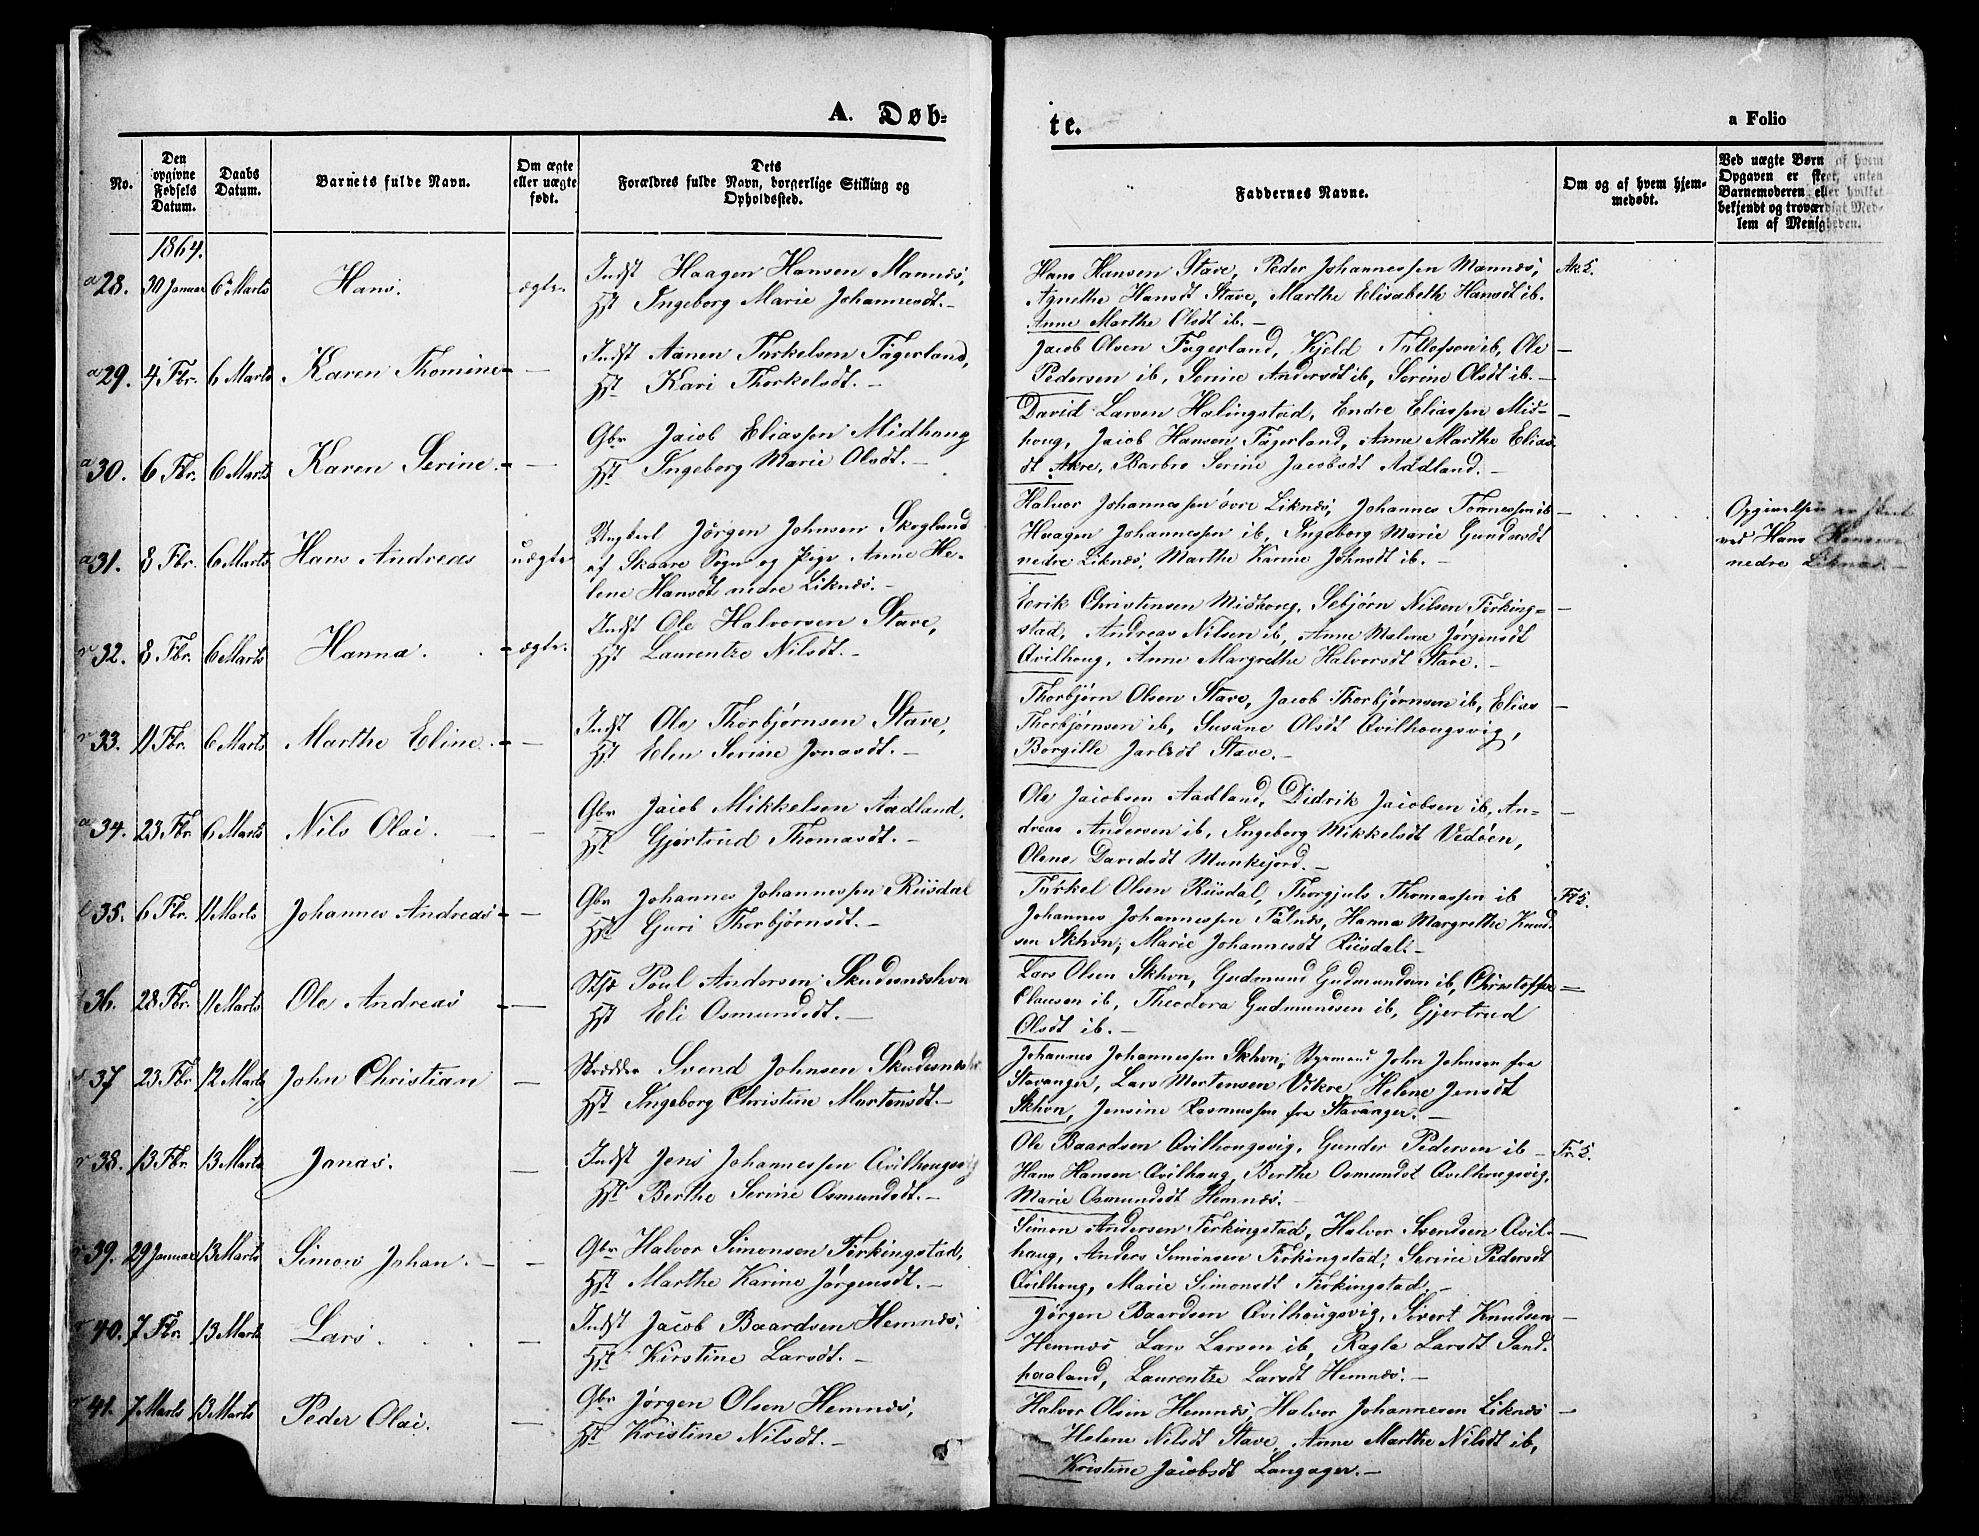 A. Døb-
te.
a Folio
No.
Den opgivne Fødsels Datum.
Daabs Datum.
Barnets fulde Navn.
Om ægte eller uægte født.
Dets Forældres fulde Navn, borgerlige Stilling og Opholdssted.
Faddernes Navne.
Om og af hvem hjemmedøbt.
Ved uægte Børn af hvem Opgaven er skeet, enten Barnemoderen eller hvilket bekjendt og troværdigt Medlem af Menigheden.
1864.
28. 30 Januar 6 Marts Hans. ægte
Indst Haagen Hansen Mannæs,
Hst Ingeborg Marie Johannesdt.-
Hans Hansen Stave, Peder Johannessen Mannæs,
Agnethe Hansdt Stave, Marthe Elisabeth Hansdt ib.
Anne Marthe Olsdt ib.-
29. 4 Fbr. 6 Marts Karen Thomine -
Indst Aanen Torkelsen Fagerland,
Hst Kari Thorkelsdt.-
Jacob Olsen Fagerland, Kjeld Tollofsen ib, Ole
Pedersen ib, Serine Andersdt ib, Serine Olsdt ib.-
30. 6 Fbr. 6 Marts Karen Serine. -
Gbr Jacob Eliassen Midhoug
Hst Ingeborg Marie Olsdt.-
David Larsen Halingstad, Endre Eliassen Mid-
houg, Jacob Hansen Fagerland, Anne Marthe Elias
dt Akre, Barbro Serine Jacobsdt Aadland.-
31. 8 Fbr. 6 Marts Hans Andreas uægte
Ungkarl Jørgen Johnsen Skogland
af Skaare Sogn og Pige Anne He-
lene Hansdt nedre Liknæs.-
Halvor Johannessen øvre Liknæs, Johannes Tønnessen ib
Haagen Johannessen ib, Ingeborg Marie Gundersdt
nedre Liknæs, Marthe Karine Johnsdt ib.-
Opgivelsen er skeet
ved Hans Hansen
nedre Liknæs.-
32. 8 Fbr. 6 Marts Hanna. ægte
Indst Ole Halvorsen Stave,
Hst Laurentze Nilsdt.-
Eerik Christensen Midhoug, Sebjørn Nilsen Ferking-
stad, Andreas Nilsen ib, Anne Malene Jørgensdt
Qvilhoug, Anne Margrethe Halvorsdt Stave.-
33. 11 Fbr. 6 Marts Marthe Eline. -
Indst Ole Thorbjørnsen Stave,
Hst Elen Serine Jonasdt.-
Thorbjørn Olsen Stave, Jacob Thorbjørnsen ib, Elias
Thorbjørnsen ib, Susane Olsdt Qvilhougsvig,
Borgille Jarlsdt Stave.-
34. 23 Fbr 6 Marts Nils Olai. -
Gbr Jacob Mikkelsen Aadland,
Hst Gjertrud Thomasdt.-
Ole Jacobsen Aadland, Didrik Jacobsen ib, An-
dreas Andersen ib, Ingeborg Mikkelsdt Vedøen,
Olene Davidsdt Munkejord.-
35. 6 Fbr. 11 Marts Johannes Andreas -
Gbr Johannes Johannessen Riisdal
Hst Guri Thorbjørnsdt.-
Torkel Olsen Riisdal, Thorgjuls Thomassen ib
Johannes Johannessen Falnæs, Hanna Margrethe Knud-
sen Skhvn, Marie Johannesdt Riisdal.-
36. 28 Fbr. 11 Marts Ole Andreas -
Poul Andersen Skudesneshvn
Hst Eli Osmundsdt.-
Lars Olsen Skhvn, Gudmund Gudmundsen ib, Christoffer
Clausen ib, Theodora Gudmundsen ib, Gjertrud
Olsdt ib.-
37 23 Fbr 12 Marts John Christian -
Skrædder Svend Johnsen Skudesneshv
Hst Ingeborg Christine Mortensdt.-
Johannes Johannessen Skhvn, Styrmand John Johnsen fra
Stavanger, Lars Mortensen Vikre, Helene Jensdt
Skhvn, Jensine Rasmussen fra Stavanger.-
38. 13 Fbr. 13 Marts Jonas. -
Indst Jens Johannessen Qvilhougsvig
Hst Berthe Serine Osmundsdt.-
Ole Baardsen Qvilhougsvig, Gunder Pedersen ib -
Hans Hansen Qvilhaug, Berthe Osmundsdt Qvilhougsvig,
Marie Osmundsdt Hemnæs.-
39. 29 Januar 13 Marts Simon Johan. -
Gbr Halvor Simonsen Ferkingstad,
Hst Marthe Karine Jørgensdt.-
Simon Andersen Ferkingstad, Halvor Svendsen Qvil-
haug, Anders Simonsen Ferkingstad, Serine Pedersdt
Qvilhoug, Marie Simonsdt Ferkingstad.-
40. 7 Fbr. 13 Marts Lars. -
Indst Jacob Baardsen Hemnæs,
Hst Kirstine Larsdt.-
Jørgen Baardsen Qvilhougsvig, Sivert Knudsen
Hemnæs Lars Larsen ib, Ragla Larsdt Sand-
haaland, Laurentze Larsdt Hemnæs.-
41. 7 Marts 13 Marts Peder Olai. -
Gbr Jørgen Olsen Hemnæs,
Hst Kristine Nilsdt.-
Halvor Olsen Hemnæs, Halvor Johannesen Liknæs
Helene Nilsdt Stave, Anne Marthe Nilsdt ib,
Kristine Jacobsdt Langager.-